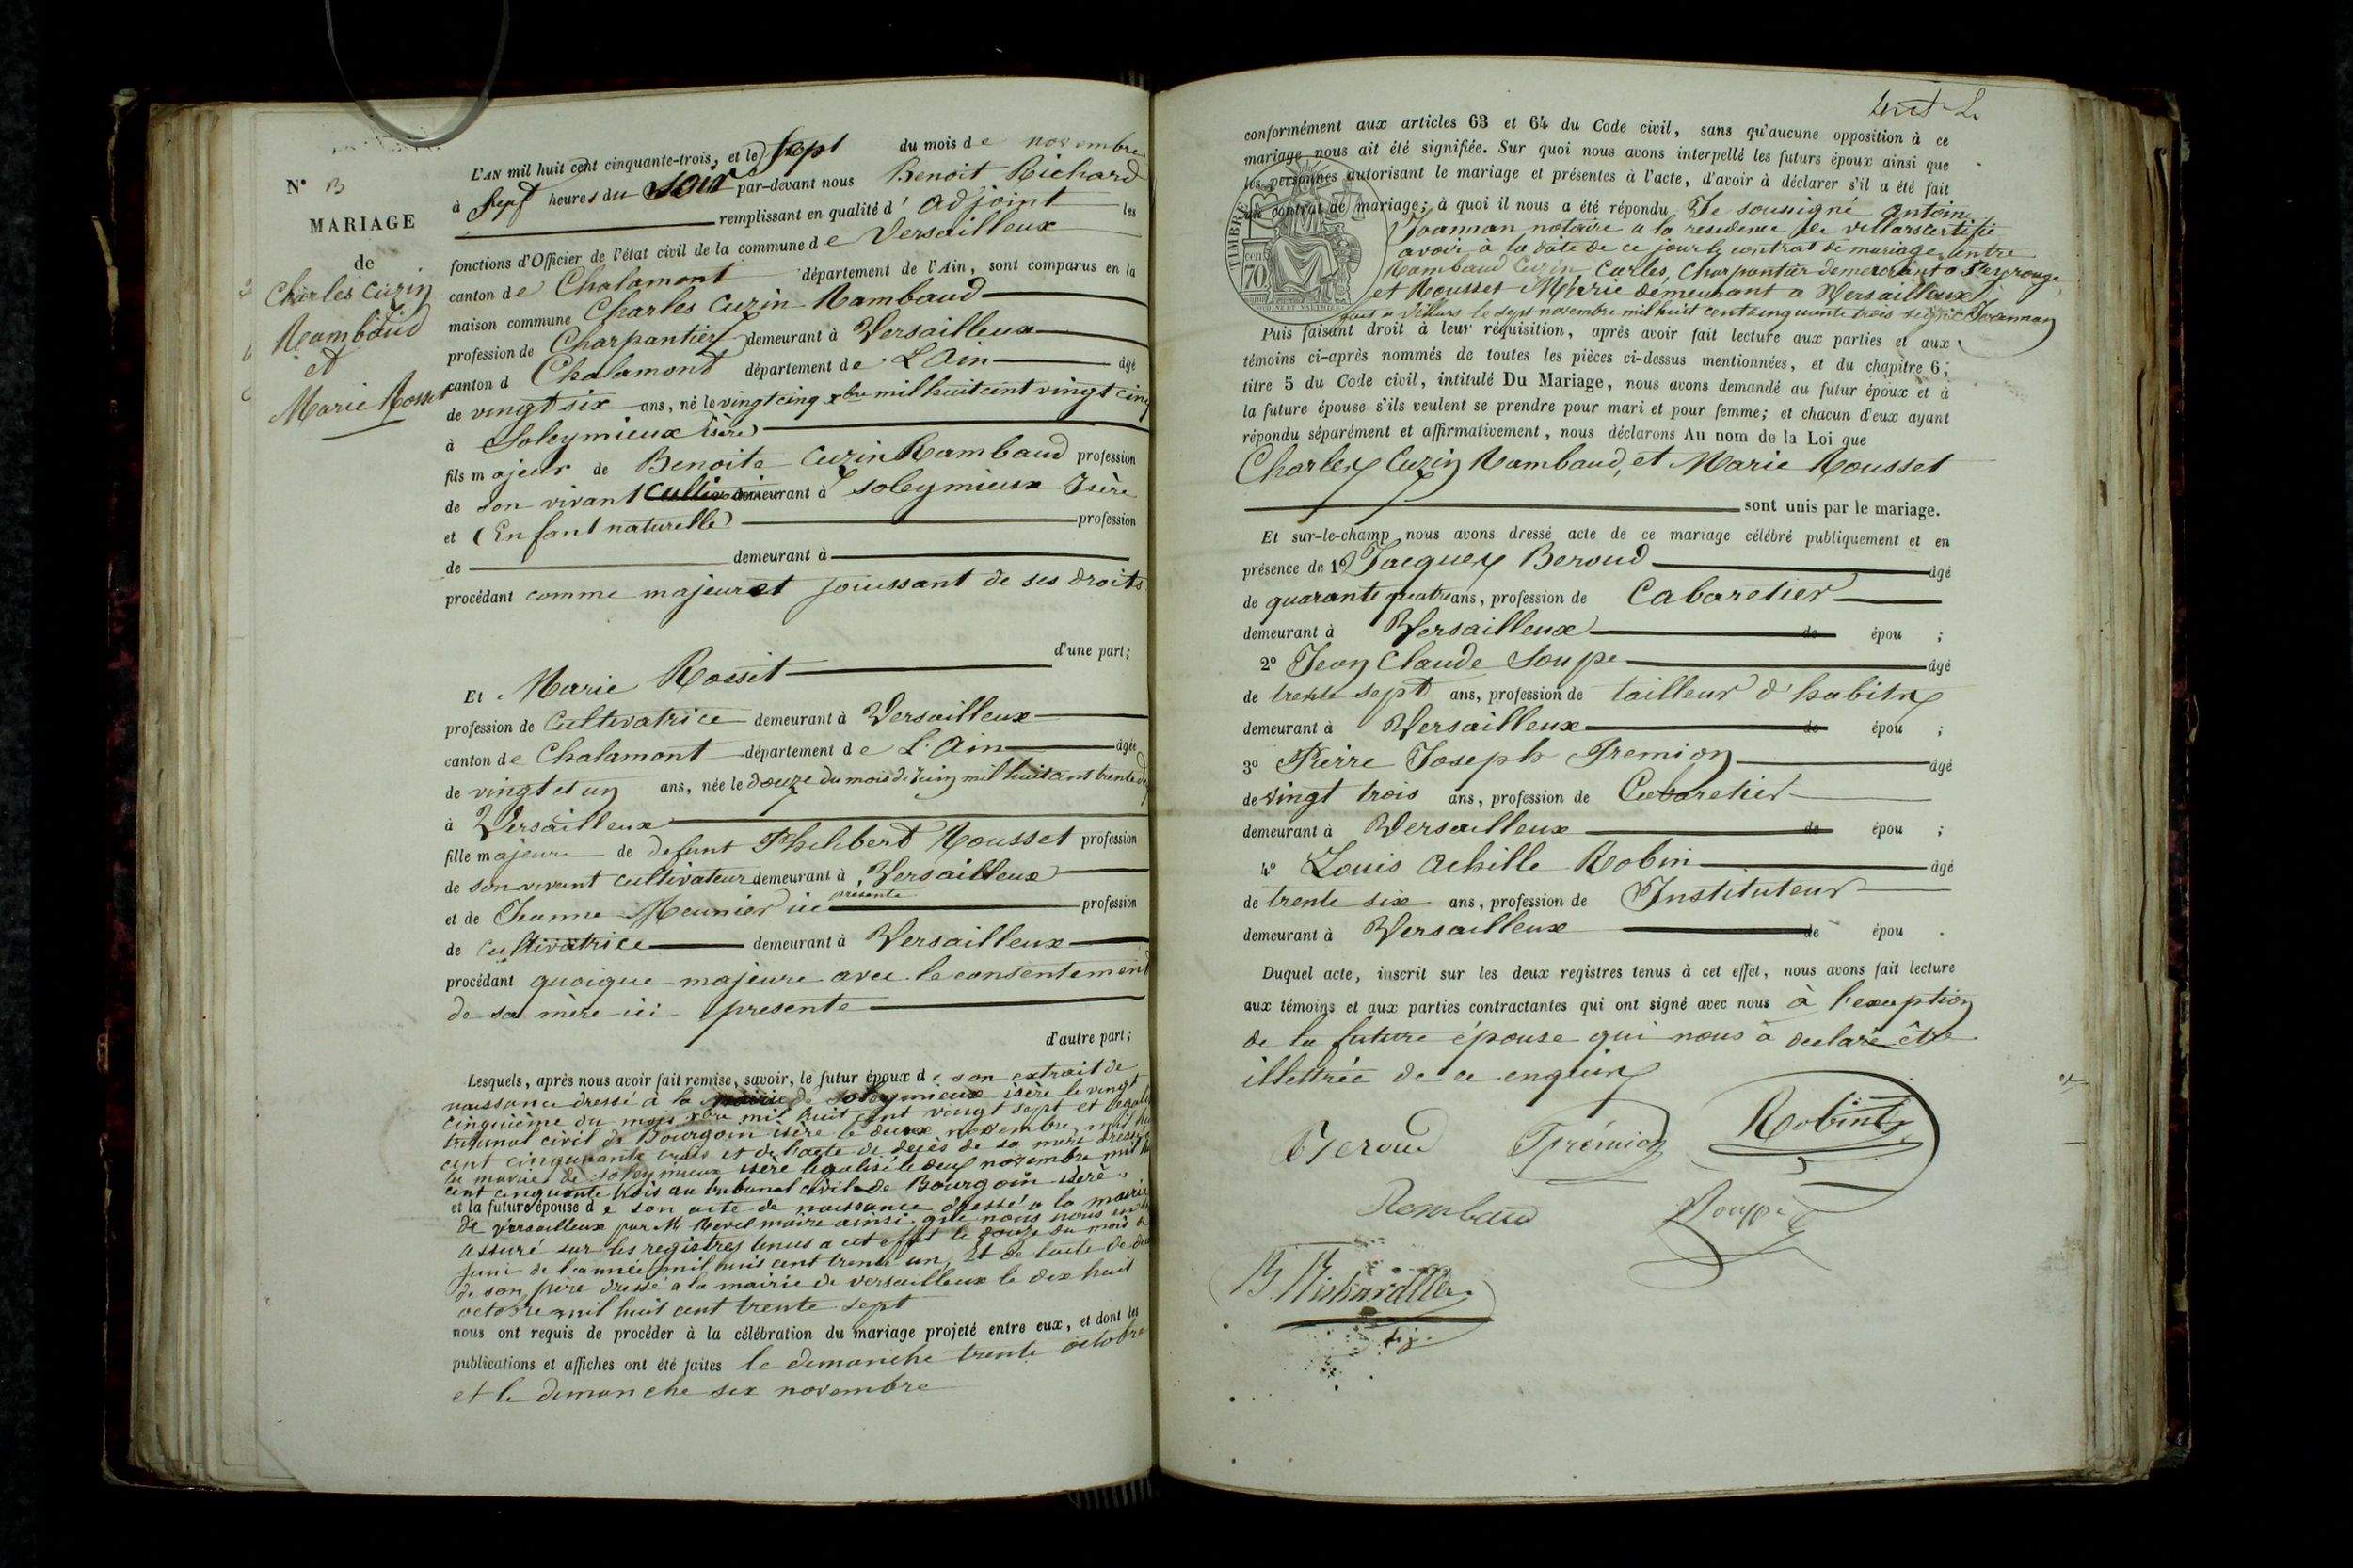 N° 13
MARIAGE
de
Charles Cuzin
Rambaud
et
Marie Rosset
L'AN mil huit cent cinquante-trois, et le sept du mois de novembre
à sept heures du soir par-devant nous Benoit Richard
remplissant en qualité d'adjoint les
fonctions d'Officier de l'état civil de la commune de Versailleux
canton de Chalamont département de l'Ain, sont comparus en la
maison commune Charles Cuzin Rambaud
profession de Charpantier demeurant à Versailleux
canton d Chalamont département de L'Ain âgé
de vingt six ans, né le vingt cinq xbre mil huit cent vingt cinq
à Soleymieux (isère)
fils majeur de Benoite Cuzin Rambaud profession
de son vivant demeurant à Soleymieux Isère
et (Enfant naturelle) profession
de demeurant à
procédant comme majeur et jouissant de ses droits
d'une part;
Et Marie Rosset
profession de Cultivatrice demeurant à Versailleux
canton de Chalamont département de L'Ain âgée
de vingt et un ans, née le douze du mois de Juin mil huit cent trente
à Versailleux
fille majeure de defunt Philibert Rousset profession
de son vivant cultivateur demeurant à Versailleux
et de Jeanne Meunier ici présente profession
de cultivatrice demeurant à Versailleux
procédant quoique majeure avec le consentement
de sa mère ici presente
d'autre part;
Lesquels, après nous avoir fait remise, savoir, le futur époux de son extrait de
naissance dressé a la mairie de Soleymieux isère le vingt
cinquième du mois xbre mil huit cent vingt sept et légalisé
tribunal civil de Bourgoin isère le deux novembre mil
cent cinquante trois et de l'acte de décès de sa mère dressé
la mairie de Soleymieux isère légalisé le deux novembre mil
cent cinquante trois au tribunal civil de Bourgoin isère
et la future épouse de son acte de naissance dressé a la mairie
de versailleux par Mr Revel maire ainsi que nous nous en
assuré sur les registres tenus a cet effet le douze du mois de
juin de l'année mil huit cent trente un, Et de l'acte de
de son père dressé a la mairie de versailleux le dix huit
octobre mil huit cent trente sept
nous ont requis de procéder à la célébration du mariage projeté entre eux, et dont les
publications et affiches ont été faites le dimanche trente octobre
et le dimanche six novembre
conformément aux articles 63 et 64 du Code civil, sans qu'aucune opposition à ce
mariage nous ait été signifiée. Sur quoi nous avons interpellé les futurs époux ainsi que
les personnes autorisant le mariage et présentes à l'acte, d'avoir à déclarer s'il a été fait
un contrat de mariage; à quoi il nous a été répondu Je soussigné antoine
Joannan notaire a la residence de villars certifie
avoir à la date de ce jour le contrat de mariage entre
Rambaud Cuzin Carles, Charpantier demeurant a
et Rousset Marie demeurant a Versailleux
fait a Villars le sept novembre mil huit cent cinquante trois signé Joannan
TIMBRE
70
Puis faisant droit à leur réquisition, après avoir fait lecture aux parties et aux
témoins ci-après nommés de toutes les pièces ci-dessus mentionnées, et du chapitre 6;
titre 5 du Code civil, intitulé Du Mariage, nous avons demandé au futur époux et à
la future épouse s'ils veulent se prendre pour mari et pour femme; et chacun d'eux ayant
répondu séparément et affirmativement, nous déclarons Au nom de la Loi que
Charles Cuzin Rambaud, et Marie Rousset
sont unis par le mariage.
Et sur-le-champ nous avons dressé acte de ce mariage célébré publiquement et en
présence de 1° Jacques Beroud âgé
de quarante quatre ans, profession de Cabaretier
demeurant à Versailleux de épou ;
2° Jean Claude Soupe âgé
de trente sept ans, profession de tailleur d'habits
demeurant à Versailleux de épou ;
3° Pierre Joseph Tremion âgé
de vingt trois ans, profession de Cabaretier
demeurant à Versailleux de épou ;
4° Louis Achille Robin âgé
de trente six ans, profession de Instituteur
demeurant à Versailleux de épou .
Duquel acte, inscrit sur les deux registres tenus à cet effet, nous avons fait lecture
aux témoins et aux parties contractantes qui ont signé avec nous à l'exeption
de la future épouse qui nous à declaré être
illettrée de ce enquis
Beroud Trémion Robin
Rambaud Soupe